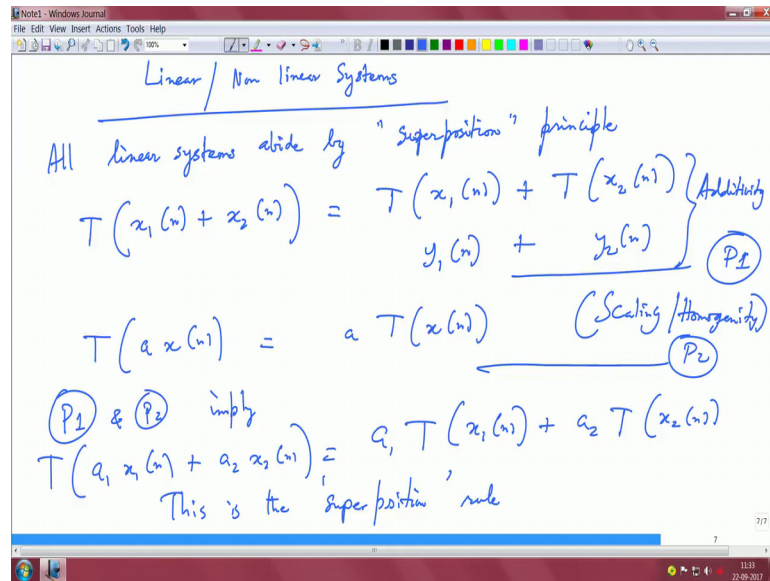 Note1 - Windows Journal
File Edit View Insert Actions Tools Help
100%
Linear / Non linear Systems
All linear systems abide by "superposition" principle
T(x₁(n) + x₂(n)) = T(x₁(n)) + T(x₂(n)) } Additivity
y₁(n) + y₂(n) P1
T(a x(n)) = a T(x(n)) (Scaling/Homogenity)
P2
P1 & P2 imply
T(a₁ x₁(n) + a₂ x₂(n)) = a₁ T(x₁(n)) + a₂ T(x₂(n))
This is the 'superposition' rule
7/7
7
11:33
22-09-2017